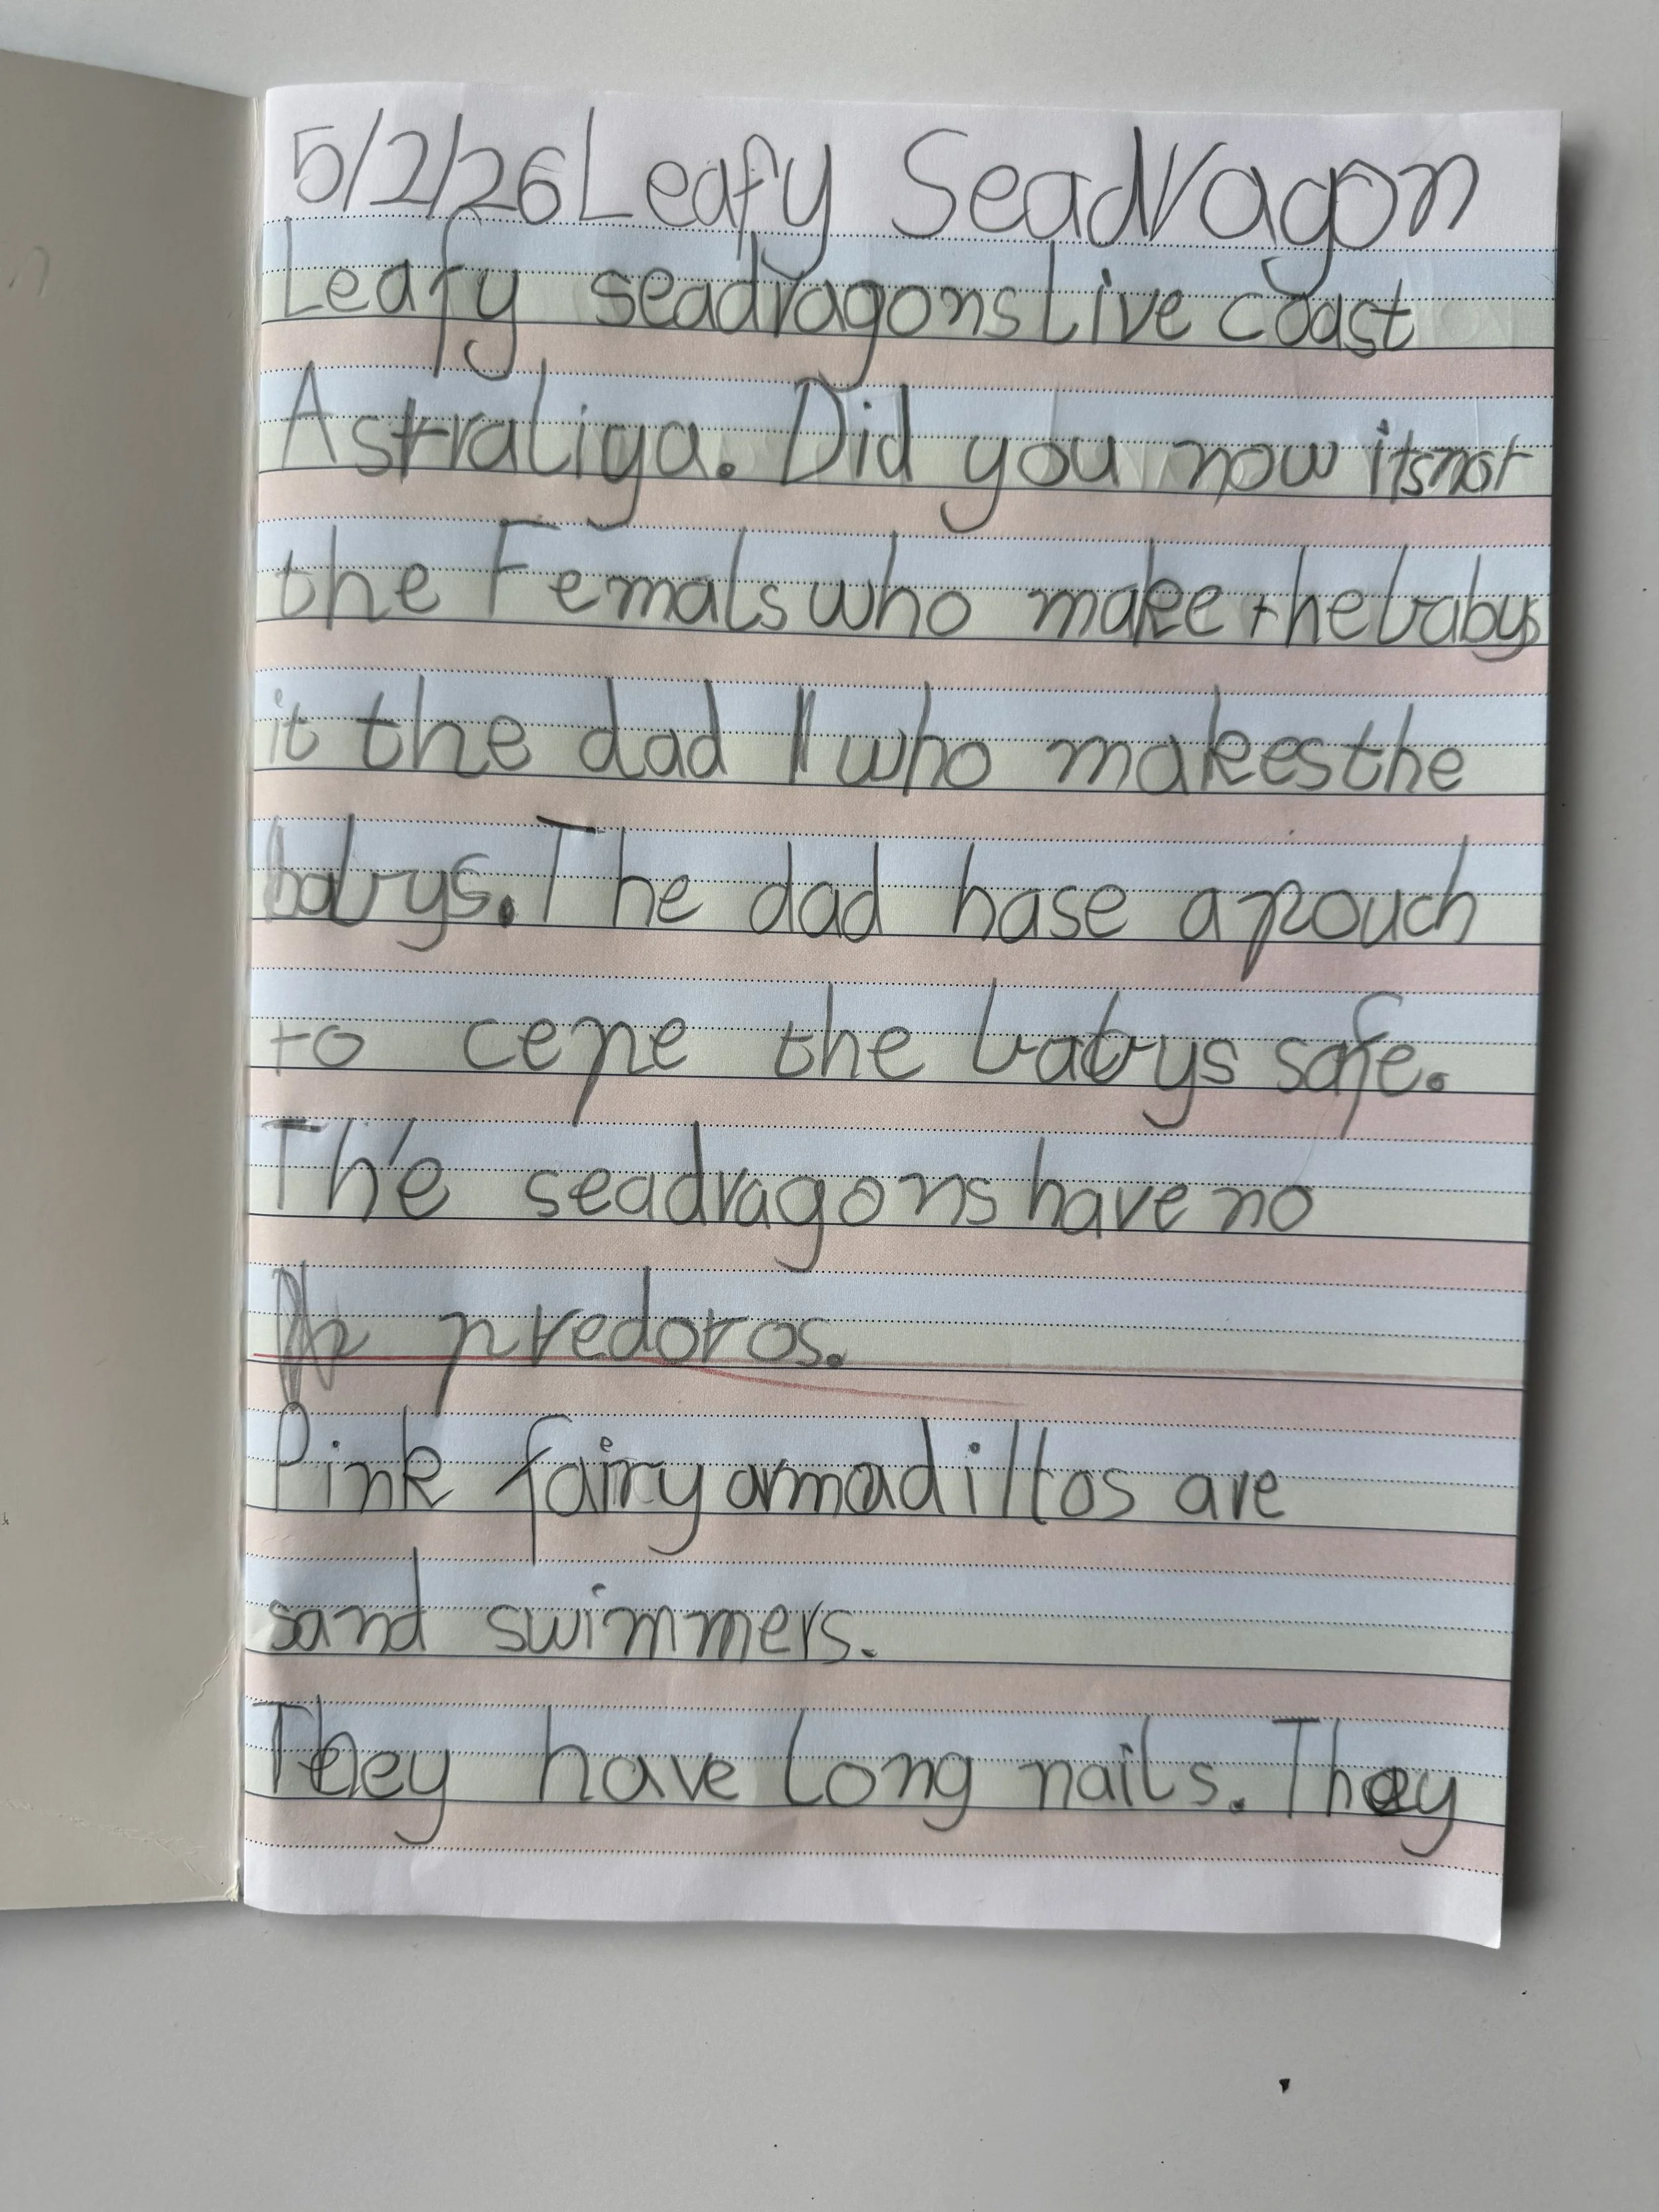 5/2/26 Leafy Seadragon
Leafy seadragons Live coast
Astraliya. Did you now its not
the Femals who make the babys
it the dad who makes the
babys. The dad hase a pouch
to cepe the babys safe.
The seadragons have no
predoros.
Pink fairy armadillos are
sand swimmers.
They have long nails. They